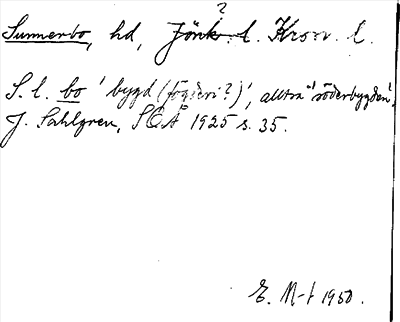 ?
Sunnerbo, hd, Jönk. l. Kron. l.
S. l. bo 'bygd (fögderi?)', alltså 'söderbygden'.
J. Sahlgren, SOÅ 1925 s. 35.
E. M-t 1950.